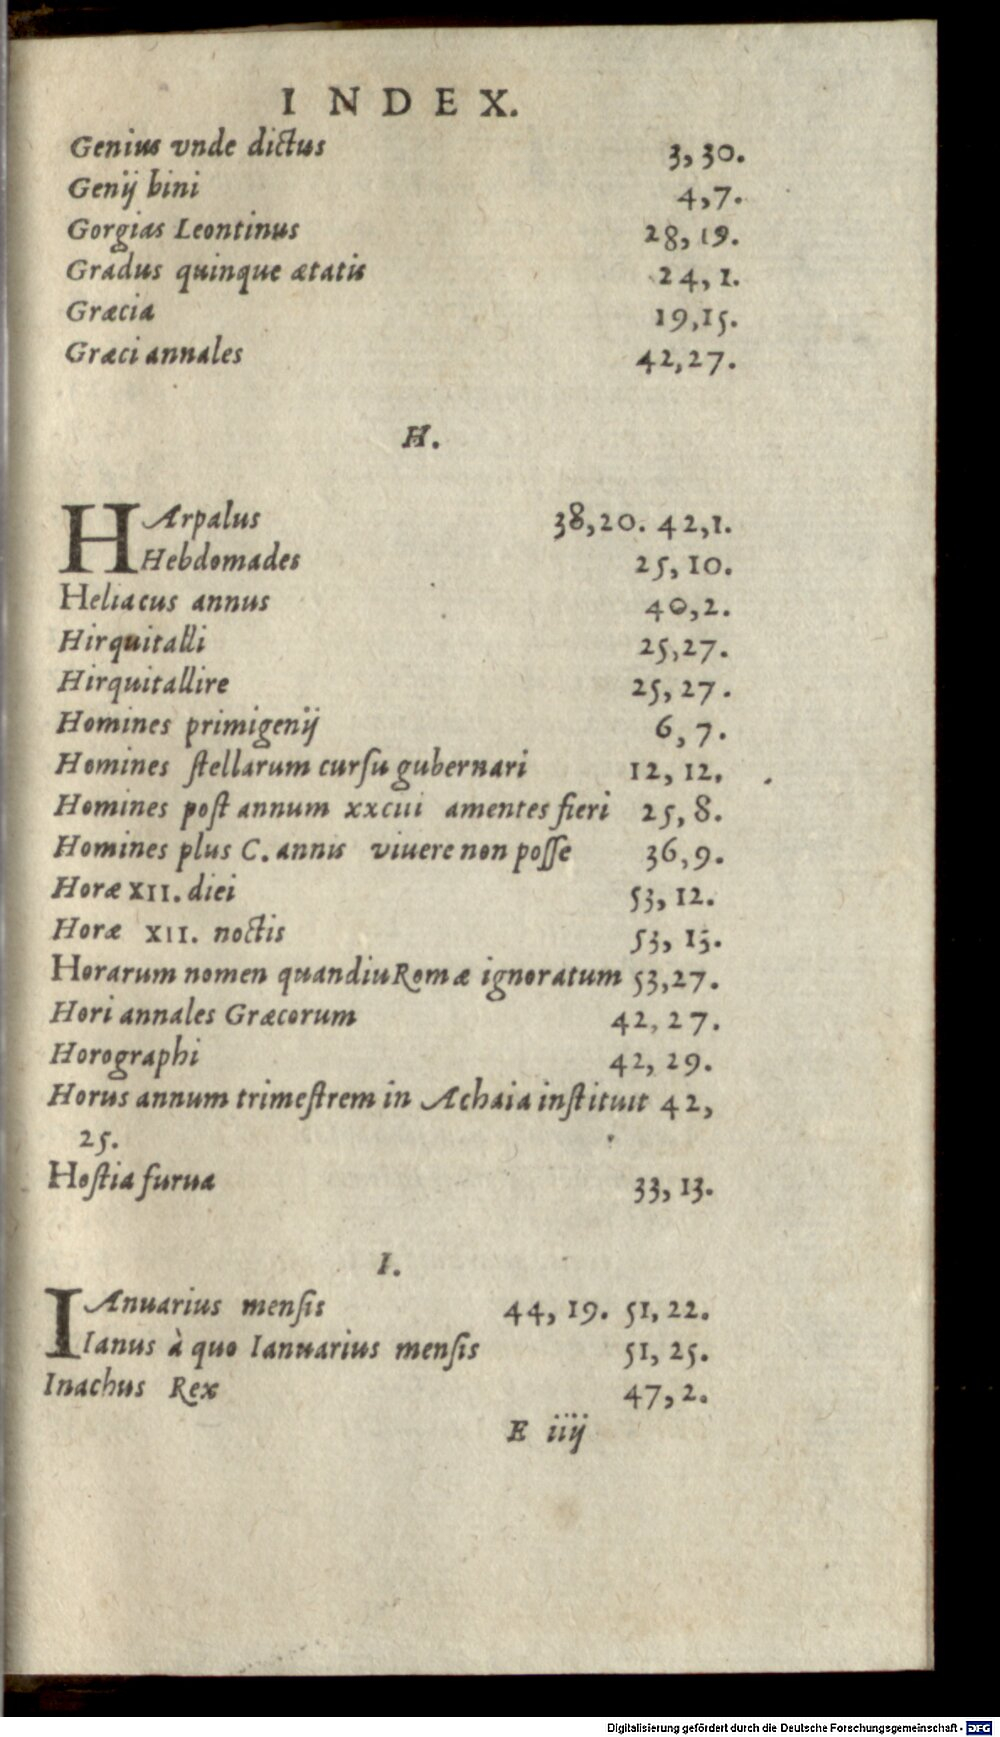 INDEX.
Genius vnde dictus 3, 30.
Genij bini 4,7.
Gorgias Leontinus 28, 19.
Gradus quinque ætatis 24, 1.
Græcia 19,15.
Græci annales 42,27.
H.
HArpalus 38,20. 42,1.
Hebdomades 25, 10.
Heliacus annus 40,2.
Hirquitalli 25,27.
Hirquitallire 25, 27.
Homines primigenij 6, 7.
Homines ſtellarum curſu gubernari 12, 12.
Homines poſt annum xxciii amentes fieri 25, 8.
Homines plus C. annis viuere non poſſe 36,9.
Horæ XII. diei 53, 12.
Horæ XII. noctis 53, 13.
Horarum nomen quandiu Romæ ignoratum 53,27.
Hori annales Græcorum 42, 27.
Horographi 42, 29.
Horus annum trimeſtrem in Achaia inſtituit 42,
25.
Hoſtia furua 33, 13.
I.
IAnuarius menſis 44, 19. 51, 22.
Ianus à quo Ianuarius menſis 51, 25.
Inachus Rex 47, 2.
E iiij
Digitalisierung gefördert durch die Deutsche Forschungsgemeinschaft - DFG